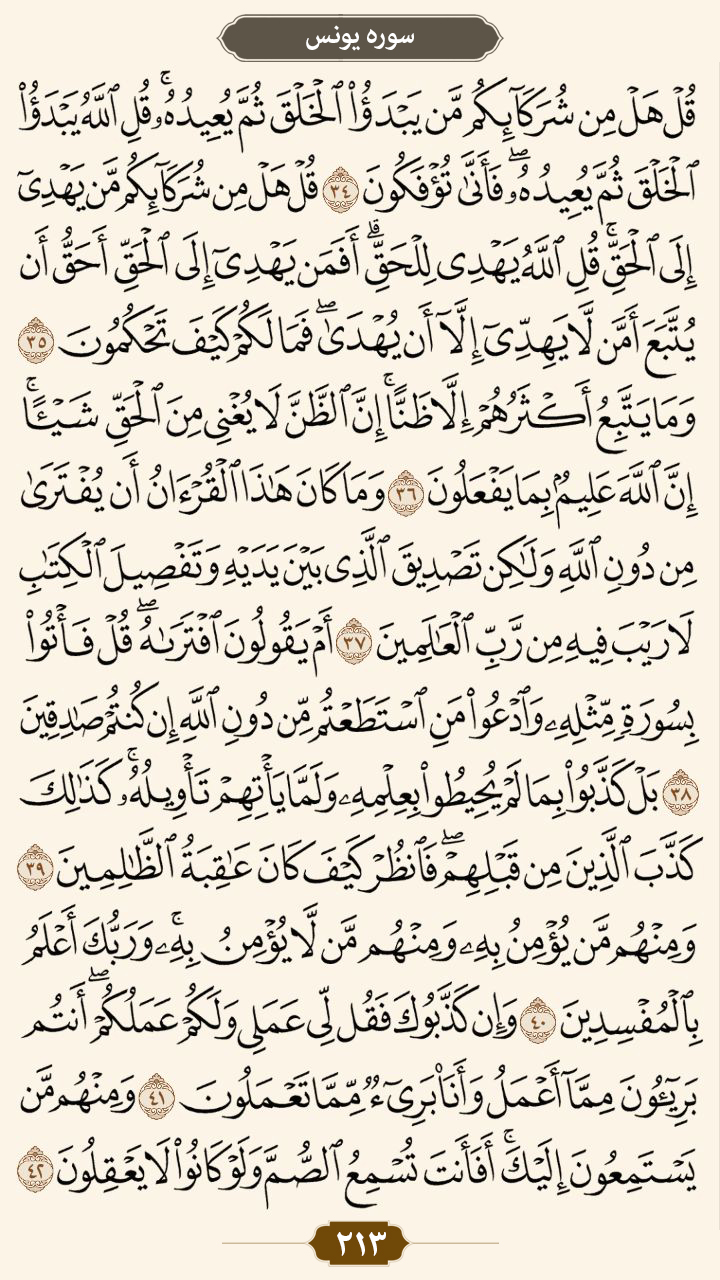 سوره یونس
قُلْ هَلْ مِن شُرَكَآئِكُم مَّن يَبْدَؤُا۟ ٱلْخَلْقَ ثُمَّ يُعِيدُهُۥ ۚ قُلِ ٱللَّهُ يَبْدَؤُا۟
ٱلْخَلْقَ ثُمَّ يُعِيدُهُۥ ۖ فَأَنَّىٰ تُؤْفَكُونَ ٣٤ قُلْ هَلْ مِن شُرَكَآئِكُم مَّن يَهْدِىٓ
إِلَى ٱلْحَقِّ ۚ قُلِ ٱللَّهُ يَهْدِى لِلْحَقِّ ۗ أَفَمَن يَهْدِىٓ إِلَى ٱلْحَقِّ أَحَقُّ أَن
يُتَّبَعَ أَمَّن لَّا يَهِدِّىٓ إِلَّآ أَن يُهْدَىٰ ۖ فَمَا لَكُمْ كَيْفَ تَحْكُمُونَ ٣٥
وَمَا يَتَّبِعُ أَكْثَرُهُمْ إِلَّا ظَنًّا ۚ إِنَّ ٱلظَّنَّ لَا يُغْنِى مِنَ ٱلْحَقِّ شَيْـًٔا ۚ
إِنَّ ٱللَّهَ عَلِيمٌۢ بِمَا يَفْعَلُونَ ٣٦ وَمَا كَانَ هَـٰذَا ٱلْقُرْءَانُ أَن يُفْتَرَىٰ
مِن دُونِ ٱللَّهِ وَلَـٰكِن تَصْدِيقَ ٱلَّذِى بَيْنَ يَدَيْهِ وَتَفْصِيلَ ٱلْكِتَـٰبِ
لَا رَيْبَ فِيهِ مِن رَّبِّ ٱلْعَـٰلَمِينَ ٣٧ أَمْ يَقُولُونَ ٱفْتَرَىٰهُ ۖ قُلْ فَأْتُوا۟
بِسُورَةٍ مِّثْلِهِۦ وَٱدْعُوا۟ مَنِ ٱسْتَطَعْتُم مِّن دُونِ ٱللَّهِ إِن كُنتُمْ صَـٰدِقِينَ
٣٨ بَلْ كَذَّبُوا۟ بِمَا لَمْ يُحِيطُوا۟ بِعِلْمِهِۦ وَلَمَّا يَأْتِهِمْ تَأْوِيلُهُۥ ۚ كَذَٰلِكَ
كَذَّبَ ٱلَّذِينَ مِن قَبْلِهِمْ ۖ فَٱنظُرْ كَيْفَ كَانَ عَـٰقِبَةُ ٱلظَّـٰلِمِينَ ٣٩
وَمِنْهُم مَّن يُؤْمِنُ بِهِۦ وَمِنْهُم مَّن لَّا يُؤْمِنُ بِهِۦ ۚ وَرَبُّكَ أَعْلَمُ
بِٱلْمُفْسِدِينَ ٤٠ وَإِن كَذَّبُوكَ فَقُل لِّى عَمَلِى وَلَكُمْ عَمَلُكُمْ ۖ أَنتُم
بَرِيٓـُٔونَ مِمَّآ أَعْمَلُ وَأَنَا۠ بَرِىٓءٌ مِّمَّا تَعْمَلُونَ ٤١ وَمِنْهُم مَّن
يَسْتَمِعُونَ إِلَيْكَ ۚ أَفَأَنتَ تُسْمِعُ ٱلصُّمَّ وَلَوْ كَانُوا۟ لَا يَعْقِلُونَ ٤٢
٢١٣